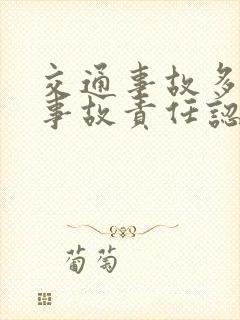 交通事故多
事故責任認
葡萄